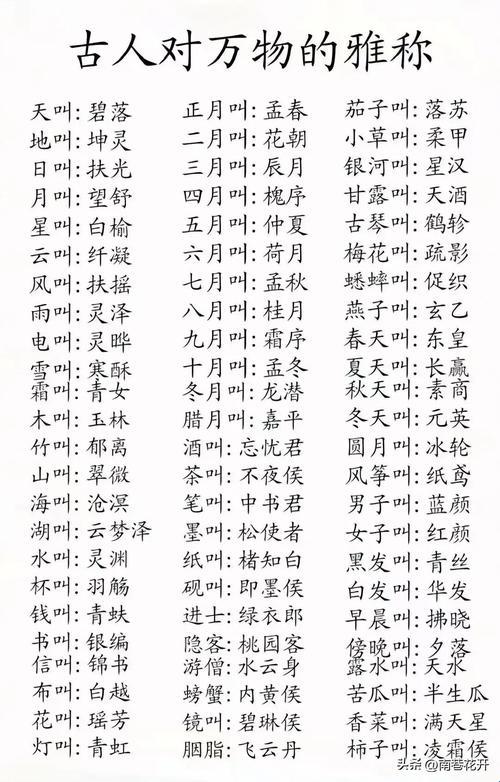 古人对万物的雅称
天叫:碧落
地叫:坤灵
日叫:扶光
月叫:望舒
星叫:白榆
云叫:纤凝
风叫:扶摇
雨叫:灵泽
电叫:灵晔
雪叫:寒酥
霜叫:青女
木叫:玉林
竹叫:郁离
山叫:翠微
海叫:沧溟
湖叫:云梦泽
水叫:灵渊
杯叫:羽觞
钱叫:青蚨
书叫:银编
信叫:锦书
布叫:白越
花叫:瑶芳
灯叫:青虹
正月叫:孟春
二月叫:花朝
三月叫:辰月
四月叫:槐序
五月叫:仲夏
六月叫:荷月
七月叫:孟秋
八月叫:桂月
九月叫:霜序
十月叫:孟冬
冬月叫:龙潜
腊月叫:嘉平
酒叫:忘忧君
茶叫:不夜侯
笔叫:中书君
墨叫:松使者
纸叫:楮知白
砚叫:即墨侯
进士:绿衣郎
隐客:桃园客
游僧:水云身
螃蟹:内黄侯
镜叫:碧琳侯
胭脂:飞云丹
茄子叫:落苏
小草叫:柔甲
银河叫:星汉
甘露叫:天酒
古琴叫:鹤轸
梅花叫:疏影
蟋蟀叫:促织
燕子叫:玄乙
春天叫:东皇
夏天叫:长赢
秋天叫:素商
冬天叫:元英
圆月叫:冰轮
风筝叫:纸鸢
男子叫:蓝颜
女子叫:红颜
黑发叫:青丝
白发叫:华发
早晨叫:拂晓
傍晚叫:夕落
露水叫:天水
苦瓜叫:半生瓜
香菜叫:满天星
柿子叫:凌霜侯
头条 @南巷花开